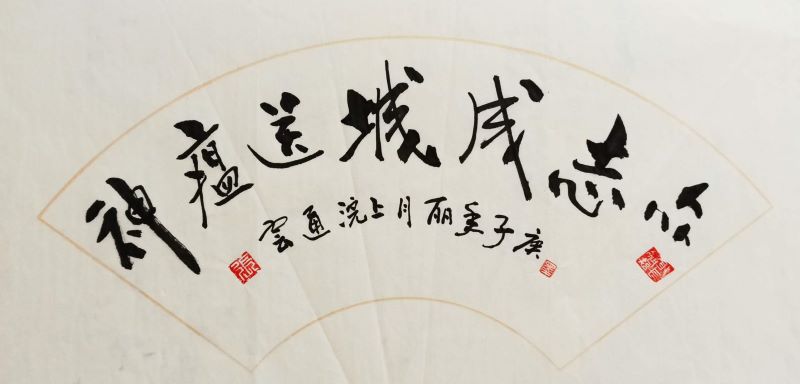 众志成城送瘟神
庚子年丽月上浣通雲